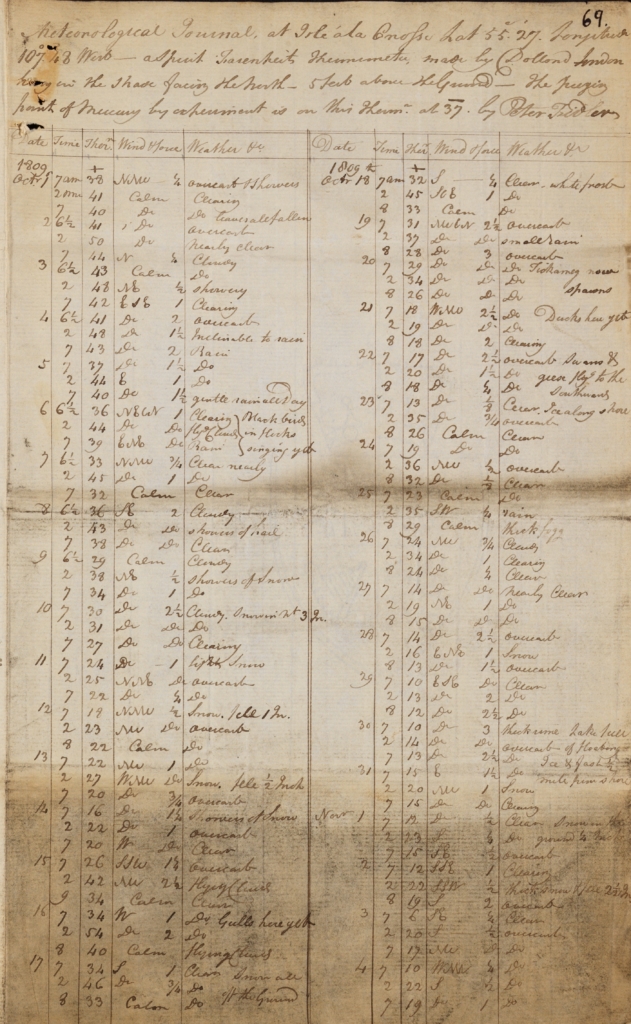 69.
Meteorological Journal, at Isle àla Crosse Lat 55°.27. Longitude
107°.48 West — a spirit Farenheits Thermometer, made by Dollond London
hung in the shade facing the North — 5 feet above the Ground — The freezing
point of Mercury by experiment is on this Therm. at 37. by Peter Fidler
Date Time Ther Wind & force Weather &c
1809 +
Octr 1 7am 38 NNW ¼ overcast & Showers
2pm 41 Calm Clearing
7 40 Do Do leaves all fallen
2 6½ 41 Do overcast
2 50 Do nearly clear
7 44 N ¼ Cloudy
3 6½ 43 Calm Do
2 48 NE ½ showery
7 42 ESE 1 Clearing
4 6½ 41 Do 2 overcast
2 48 Do 1½ Inclinable to rain
7 43 Do 2 Rain
5 7 37 Do 1½ Do
2 44 E 1 Do
7 40 Do 1½ gentle rain all Day
6 6½ 36 NEbN 1 Clearing Black birds
2 44 Do Do flyg Clouds in flocks
7 39 ENE Do Rain singing yet
7 6½ 33 NNW ¾ Clear nearly
2 45 Do 1 Do
7 32 Calm Clear
8 6½ 36 SE 2 Cloudy
2 43 Do Do showers of hail
7 38 Do Do Clear
9 6½ 29 Calm Cloudy
2 38 NE ½ showers of Snow
7 34 Do 1 Do
10 7 30 Do 2½ Cloudy. Snow in Nt 3 In.
2 31 Do Do Do
7 27 Do Do Clearing
11 7 24 Do 1 light Snow
2 25 NNE Do overcast
7 22 Do ¼ Do
12 7 18 NNW ½ Snow. fell 1 In.
2 23 NW Do overcast
8 22 Calm Do
13 7 22 NW 1 Do
2 27 WNW Do Snow. fell ½ Inch
7 20 Do ¾ overcast
14 7 16 Do 1½ Showers of Snow
2 22 Do 1 overcast
7 20 W Do Clear
15 7 26 SSW 1½ overcast
2 42 NW 2½ flying Clouds
9 34 Calm Clear
16 7 34 W 1 Do Gulls here yet
2 54 Do 2 Do
8 40 Calm flying Clouds
17 7 34 S 1 Clear Snow all
2 46 Do ¾ Do off the Ground
8 33 Calm Do
Date Time Ther Wind & force Weather &c
1809 +
Octr 18 7am 32 S ¼ Clear. white frost
2 45 SbE 1 Do
8 33 Calm Do
19 7 31 NWbN 2½ overcast
2 37 Do Do small rain
8 28 Do 3 overcast
20 7 29 Do Do Do Tickameg now
2 34 Do Do Do spawns
8 26 Do Do Do
21 7 18 WNW 2½ Do Ducks here yet
2 19 Do Do Do
8 18 Do 2 Clearing
22 7 17 Do 2½ overcast Swans &
2 20 Do 1½ Do geese flyg to the
8 18 Do ¼ Do Southward
23 7 13 Do ⅛ Clear. Ice along shore
2 35 Do ¾ overcast
8 26 Calm Clear
24 7 19 Do Do
2 36 NW ½ overcast
8 32 Do ½ Clear
25 7 23 Calm Do
2 35 SW ¼ rain
8 29 Calm thick fogg
26 7 24 NW ¾ Cloudy
2 34 Do 1 Clearing
8 24 Do ¼ Clear
27 7 14 Do Do Nearly Clear
2 19 NE 1 Do
8 15 Do Do Do
28 7 14 Do 2½ overcast
2 16 ENE 1 Snow
8 13 Do 1½ overcast
29 7 10 ESE Do Clear
2 13 Do 2 Do
8 12 Do 2½ Do
30 7 10 Do 3 thick rime Lake full
2 14 Do Do overcast of floating
7 13 Do 2½ Do Ice & fast
31 7 15 E 1½ Do mile from shore
2 20 NW 1 Snow
7 15 Do Do Clearg
Novr 1 7 12 Do ½ Clear Snow
2 23 S ¼ Do ground
7 15 SE ½ overcast
2 7 12 SSE 1 Clearing
2 22 SSW ½ thick Snow
8 19 S 2 overcast
3 7 6 SE ¼ Clear
2 20 S ½ overcast
7 17 NW Do
4 7 10 WNW ¼ Do
2 22 S ½ Do
7 19 Do 1 Do